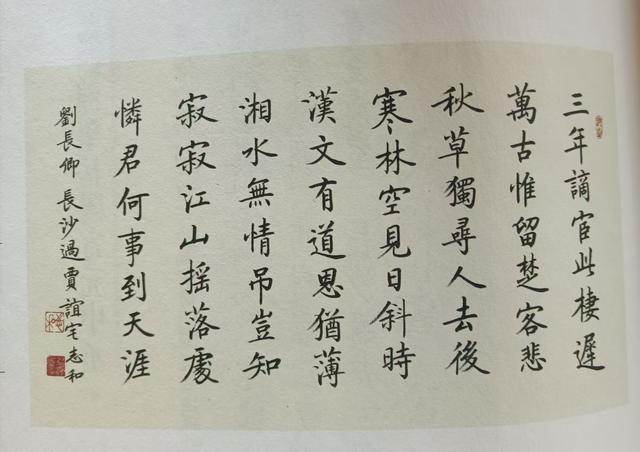 三年謫宦此棲遲
萬古惟留楚客悲
秋草獨尋人去後
寒林空見日斜時
漢文有道恩猶薄
湘水無情吊豈知
寂寂江山摇落處
憐君何事到天涯
劉長卿長沙過賈誼宅志和